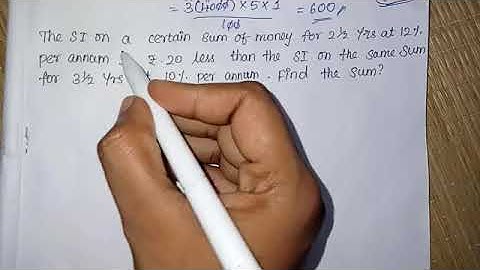 = 3(4000) × 5 × 1 = 600
100
The SI on a certain sum of money for 2½ Yrs at 12%
per annum ₹.20 less than the SI on the same sum
for 3½ Yrs 10% per annum. Find the sum?